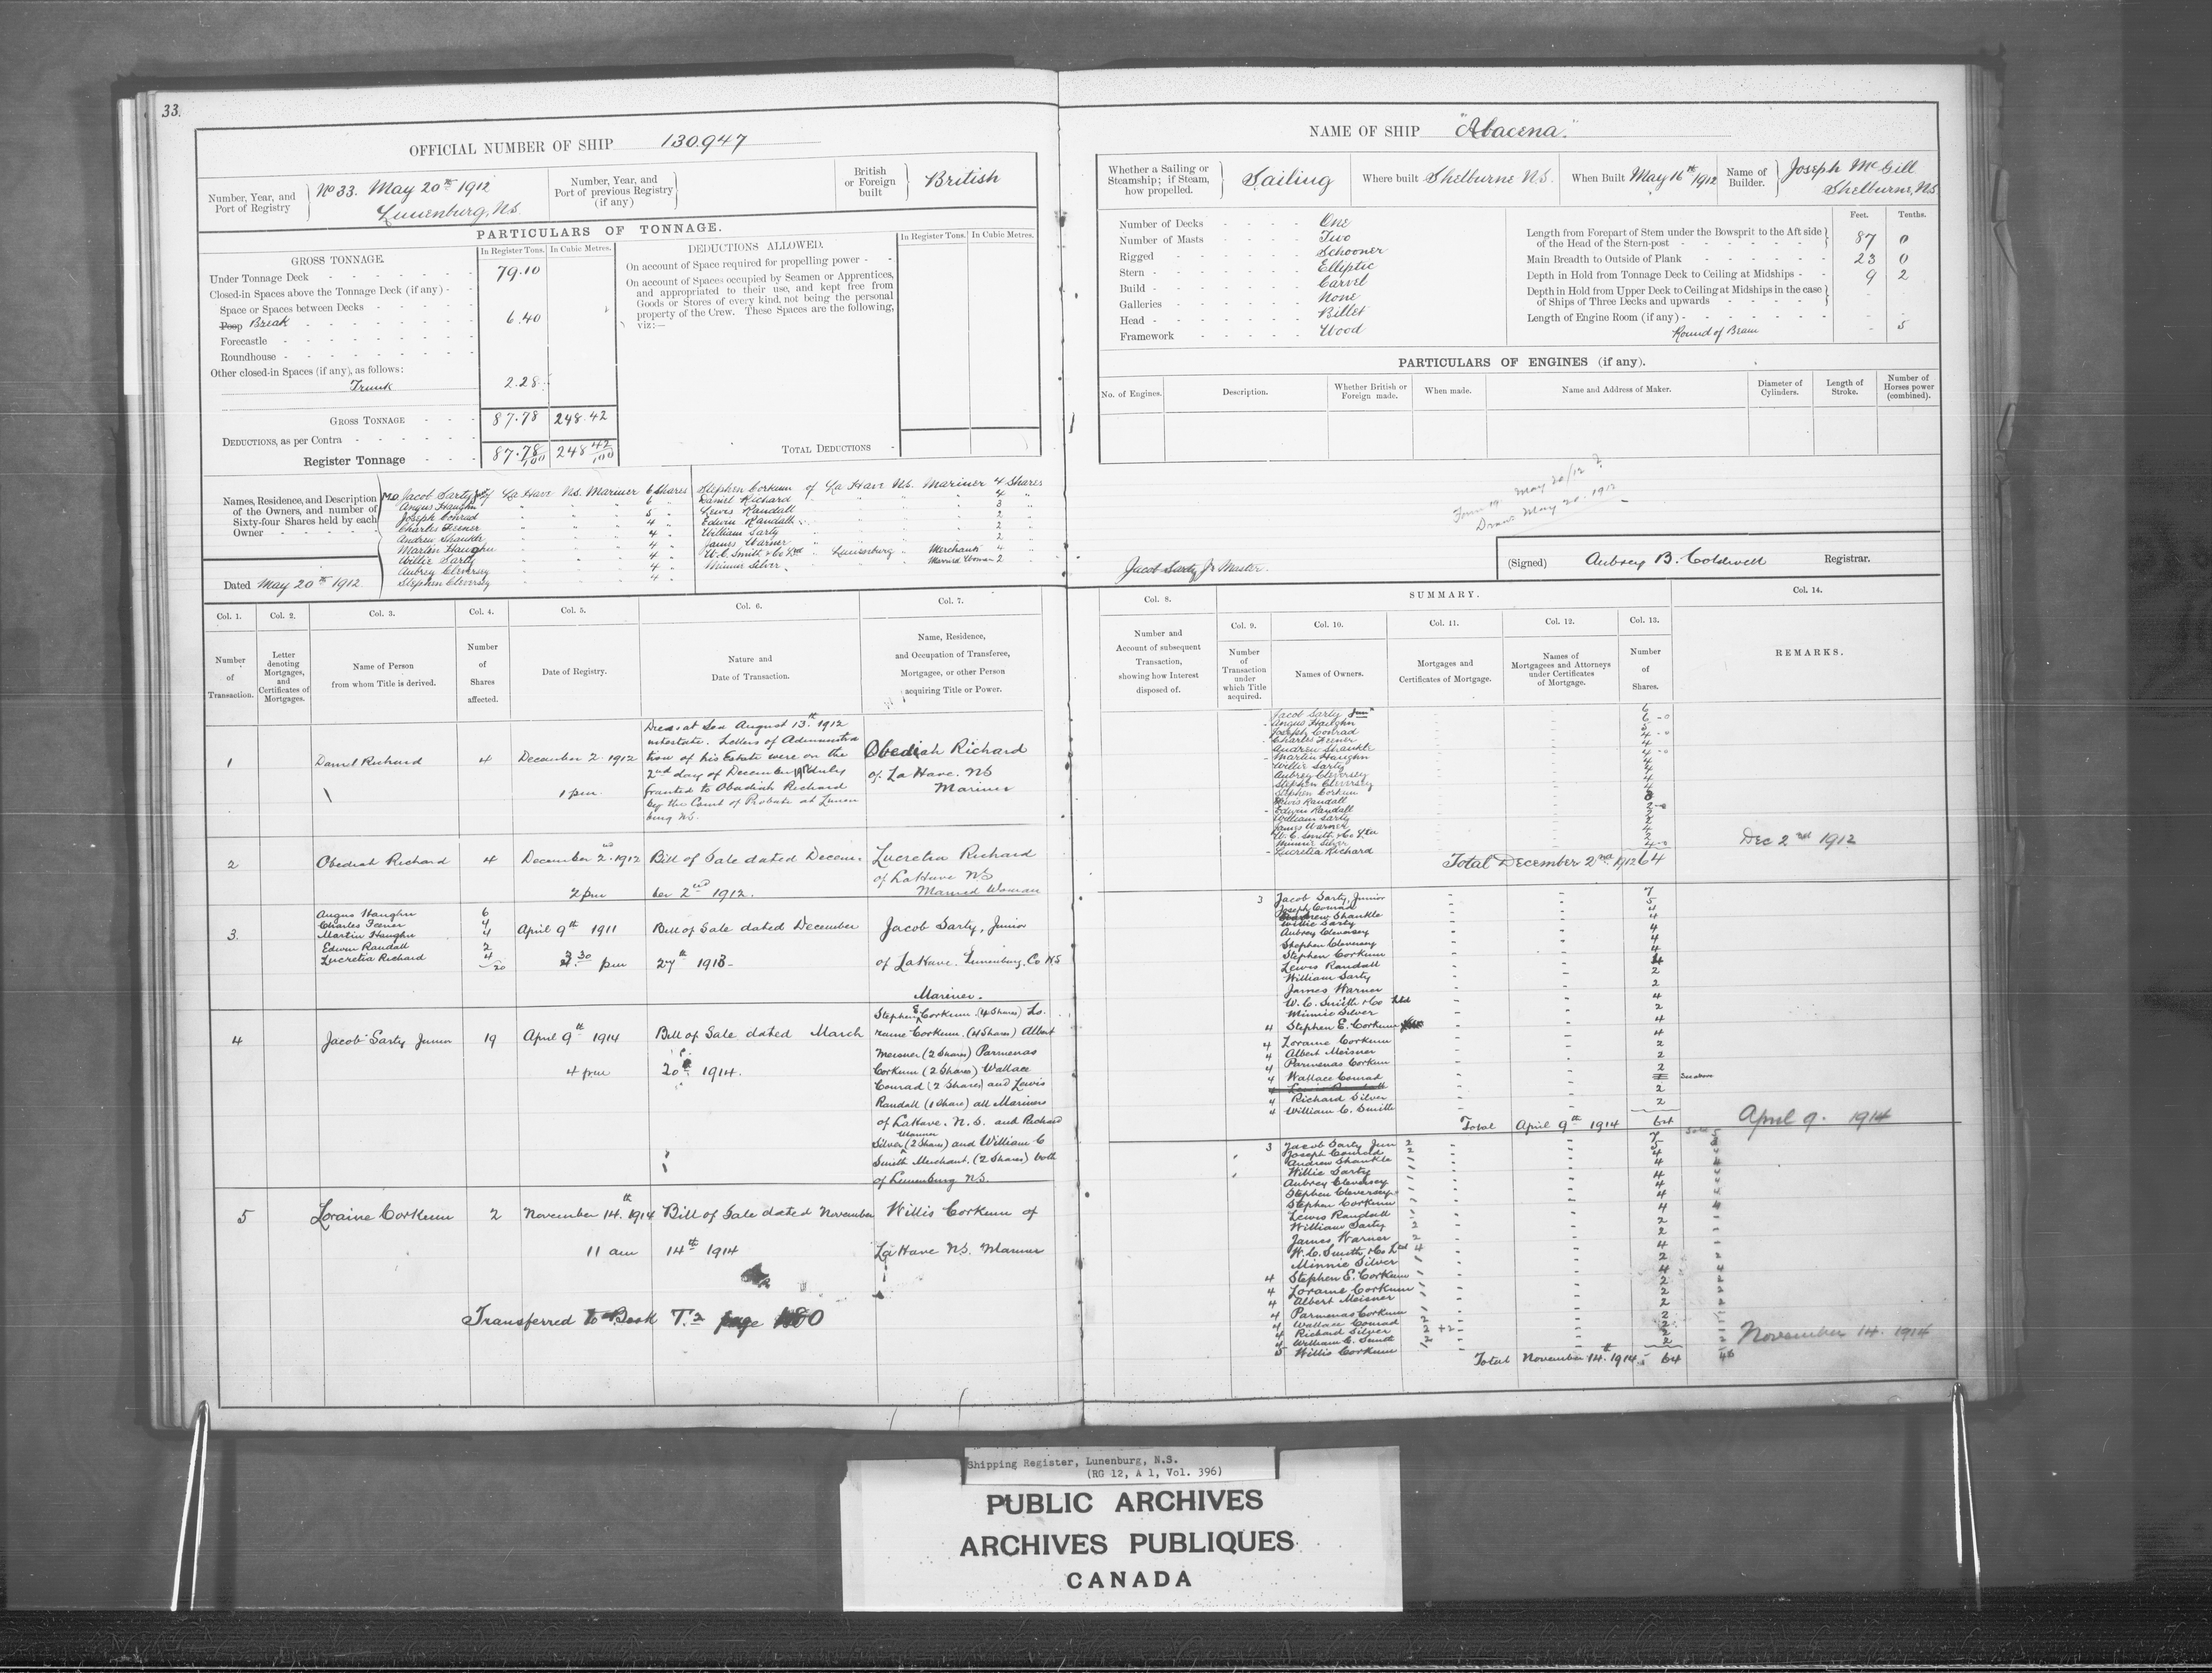 33.
OFFICIAL NUMBER OF SHIP 130.947
Number, Year, and Port of Registry No 33. May 20th 1912 Lunenburg, N.S.
Number, Year, and Port of previous Registry (if any)
British or Foreign built British
PARTICULARS OF TONNAGE.
GROSS TONNAGE. In Register Tons. In Cubic Metres.
Under Tonnage Deck 79.10
Closed-in Spaces above the Tonnage Deck (if any)
Space or Spaces between Decks
Poop Break 6.40
Forecastle
Roundhouse
Other closed-in Spaces (if any), as follows:
Trunk 2.28
GROSS TONNAGE 87.78 248.42
DEDUCTIONS, as per Contra
Register Tonnage 87.78/100 248 42/100
DEDUCTIONS ALLOWED. In Register Tons. In Cubic Metres.
On account of Space required for propelling power
On account of Spaces occupied by Seamen or Apprentices,
and appropriated to their use, and kept free from
Goods or Stores of every kind, not being the personal
property of the Crew. These Spaces are the following,
viz:—
TOTAL DEDUCTIONS
Names, Residence, and Description
of the Owners, and number of
Sixty-four Shares held by each
Owner
Dated May 20th 1912
Jacob Sarty Jr of La Have N.S. Mariner 6 Shares
Angus Haughn " " " 6 "
Joseph Conrad " " " 5 "
Charles Feener " " " 4 "
Andrew Shankle " " " 4 "
Martin Haughn " " " 4 "
Willie Sarty " " " 4 "
Aubrey Cleversey " " " 4 "
Stephen Cleversey " " " 4 "
Stephen Corkum of La Have N.S. Mariner 4 Shares
Daniel Richard " " " 4 "
Lewis Randall " " " 3 "
Edwin Randall " " " 2 "
William Sarty " " " 2 "
James Warner " " " 2 "
W. C. Smith & Co Ltd " Lunenburg " Merchants 4 "
Minnie Silver " " " Married Woman 2 "
Col. 1. Col. 2. Col. 3. Col. 4. Col. 5. Col. 6. Col. 7.
Number of Transaction.
Letter denoting Mortgages, and Certificates of Mortgages.
Name of Person from whom Title is derived.
Number of Shares affected.
Date of Registry.
Nature and Date of Transaction.
Name, Residence, and Occupation of Transferee, Mortgagee, or other Person acquiring Title or Power.
1 Daniel Richard 4 December 2. 1912 1 pm.
Died at Sea August 13th 1912
intestate. Letters of Administra
tion of his Estate were on the
2nd day of December 1912 duly
granted to Obadiah Richard
by the Court of Probate at Lunen
burg N.S.
Obediah Richard
of La Have. NS
Mariner
2 Obediah Richard 4 December 2nd. 1912 2 pm
Bill of Sale dated Decem-
ber 2nd 1912.
Lucretia Richard
of LaHave NS
Married Woman
3. Angus Haughn 6
Charles Feener 4
Martin Haughn 4
Edwin Randall 2
Lucretia Richard 4
20
April 9th 1911 3 30 pm
Bill of Sale dated December
27th 1913
Jacob Sarty, Junior
of LaHave. Lunenburg. Co NS
Mariner.
4 Jacob Sarty Junior 19 April 9th 1914 4 pm
Bill of Sale dated March
20th 1914.
Stephen E Corkum (4 Shares) Lo.
raine Corkum. (4 Shares) Albert
Meisner (2 Shares) Parmenas
Corkum (2 Shares) Wallace
Conrad (2 Shares) and Lewis
Randall (1 Share) all Mariners
of LaHave. N.S. and Richard
Silver Mariner (2 Shares) and William C
Smith Merchant. (2 Shares) both
of Lunenburg N.S.
5 Loraine Corkum 2 November 14th. 1914 11 am
Bill of Sale dated November
14th 1914
Willis Corkum of
La Have NS. Mariner
Transferred to Book T.2 page 180
NAME OF SHIP "Abacena."
Whether a Sailing or Steamship; if Steam, how propelled. Sailing
Where built Shelburne N.S.
When Built May 16th/1912
Name of Builder. Joseph McGill Shelburne, N.S
Number of Decks One
Number of Masts Two
Rigged Schooner
Stern Elliptic
Build Carvel
Galleries None
Head Billet
Framework Wood
Feet. Tenths.
Length from Forepart of Stem under the Bowsprit to the Aft side of the Head of the Stern-post 87 0
Main Breadth to Outside of Plank 23 0
Depth in Hold from Tonnage Deck to Ceiling at Midships 9 2
Depth in Hold from Upper Deck to Ceiling at Midships in the case of Ships of Three Decks and upwards
Length of Engine Room (if any)
Round of Beam 5
PARTICULARS OF ENGINES (if any).
No. of Engines. Description. Whether British or Foreign made. When made. Name and Address of Maker. Diameter of Cylinders. Length of Stroke. Number of Horses power (combined).
Form 19 May 20/12
Drawn May 20. 1912
Jacob Sarty Jr Master.
(Signed) Aubrey B. Coldwell Registrar.
Col. 8. SUMMARY. Col. 14.
Col. 9. Col. 10. Col. 11. Col. 12. Col. 13.
Number and Account of subsequent Transaction, showing how Interest disposed of.
Number of Transaction under which Title acquired.
Names of Owners.
Mortgages and Certificates of Mortgage.
Names of Mortgagees and Attorneys under Certificates of Mortgage.
Number of Shares.
REMARKS.
Jacob Sarty Junr 6
Angus Haughn 6
Joseph Conrad 5
Charles Feener 4
Andrew Shankle 4
Martin Haughn 4
Willie Sarty 4
Aubrey Cleversey 4
Stephen Cleversey 4
Stephen Corkum 4
Lewis Randall 3
Edwin Randall 2
William Sarty 2
James Warner 2
W. C. Smith & Co Ltd 4
Minnie Silver 2
Lucretia Richard 4
Total December 2nd 1912 64
Dec 2nd 1912
3 Jacob Sarty, Junior 7
Joseph Conrad 5
Andrew Shankle 4
Willie Sarty 4
Aubrey Cleversey 4
Stephen Cleversey 4
Stephen Corkum 4
Lewis Randall 4
William Sarty 2
James Warner 2
W. C. Smith & Co Ltd 4
Minnie Silver 2
4 Stephen E. Corkum 4
4 Loraine Corkum 4
4 Albert Meisner 2
4 Parmenas Corkum 2
4 Wallace Conrad 2
4 Lewis Randall See above
4 Richard Silver 2
4 William C. Smith 2
Total April 9th 1914 64
April 9. 1914
3 Jacob Sarty Jun 7
Joseph Conrad 5
Andrew Shankle 4
Willie Sarty 4
Aubrey Cleversey 4
Stephen Cleversey 4
Stephen Corkum 4
Lewis Randall 4
William Sarty 2
James Warner 2
W. C. Smith & Co Ltd 4
Minnie Silver 2
4 Stephen E. Corkum 4
4 Loraine Corkum 2
4 Albert Meisner 2
4 Parmenas Corkum 2
4 Wallace Conrad 2
4 Richard Silver 2
4 William C. Smith 2
5 Willis Corkum 2
Total November 14th. 1914. 64
November 14. 1914
Shipping Register, Lunenburg, N.S.
(RG 12, A 1, Vol. 396)
PUBLIC ARCHIVES
ARCHIVES PUBLIQUES
CANADA